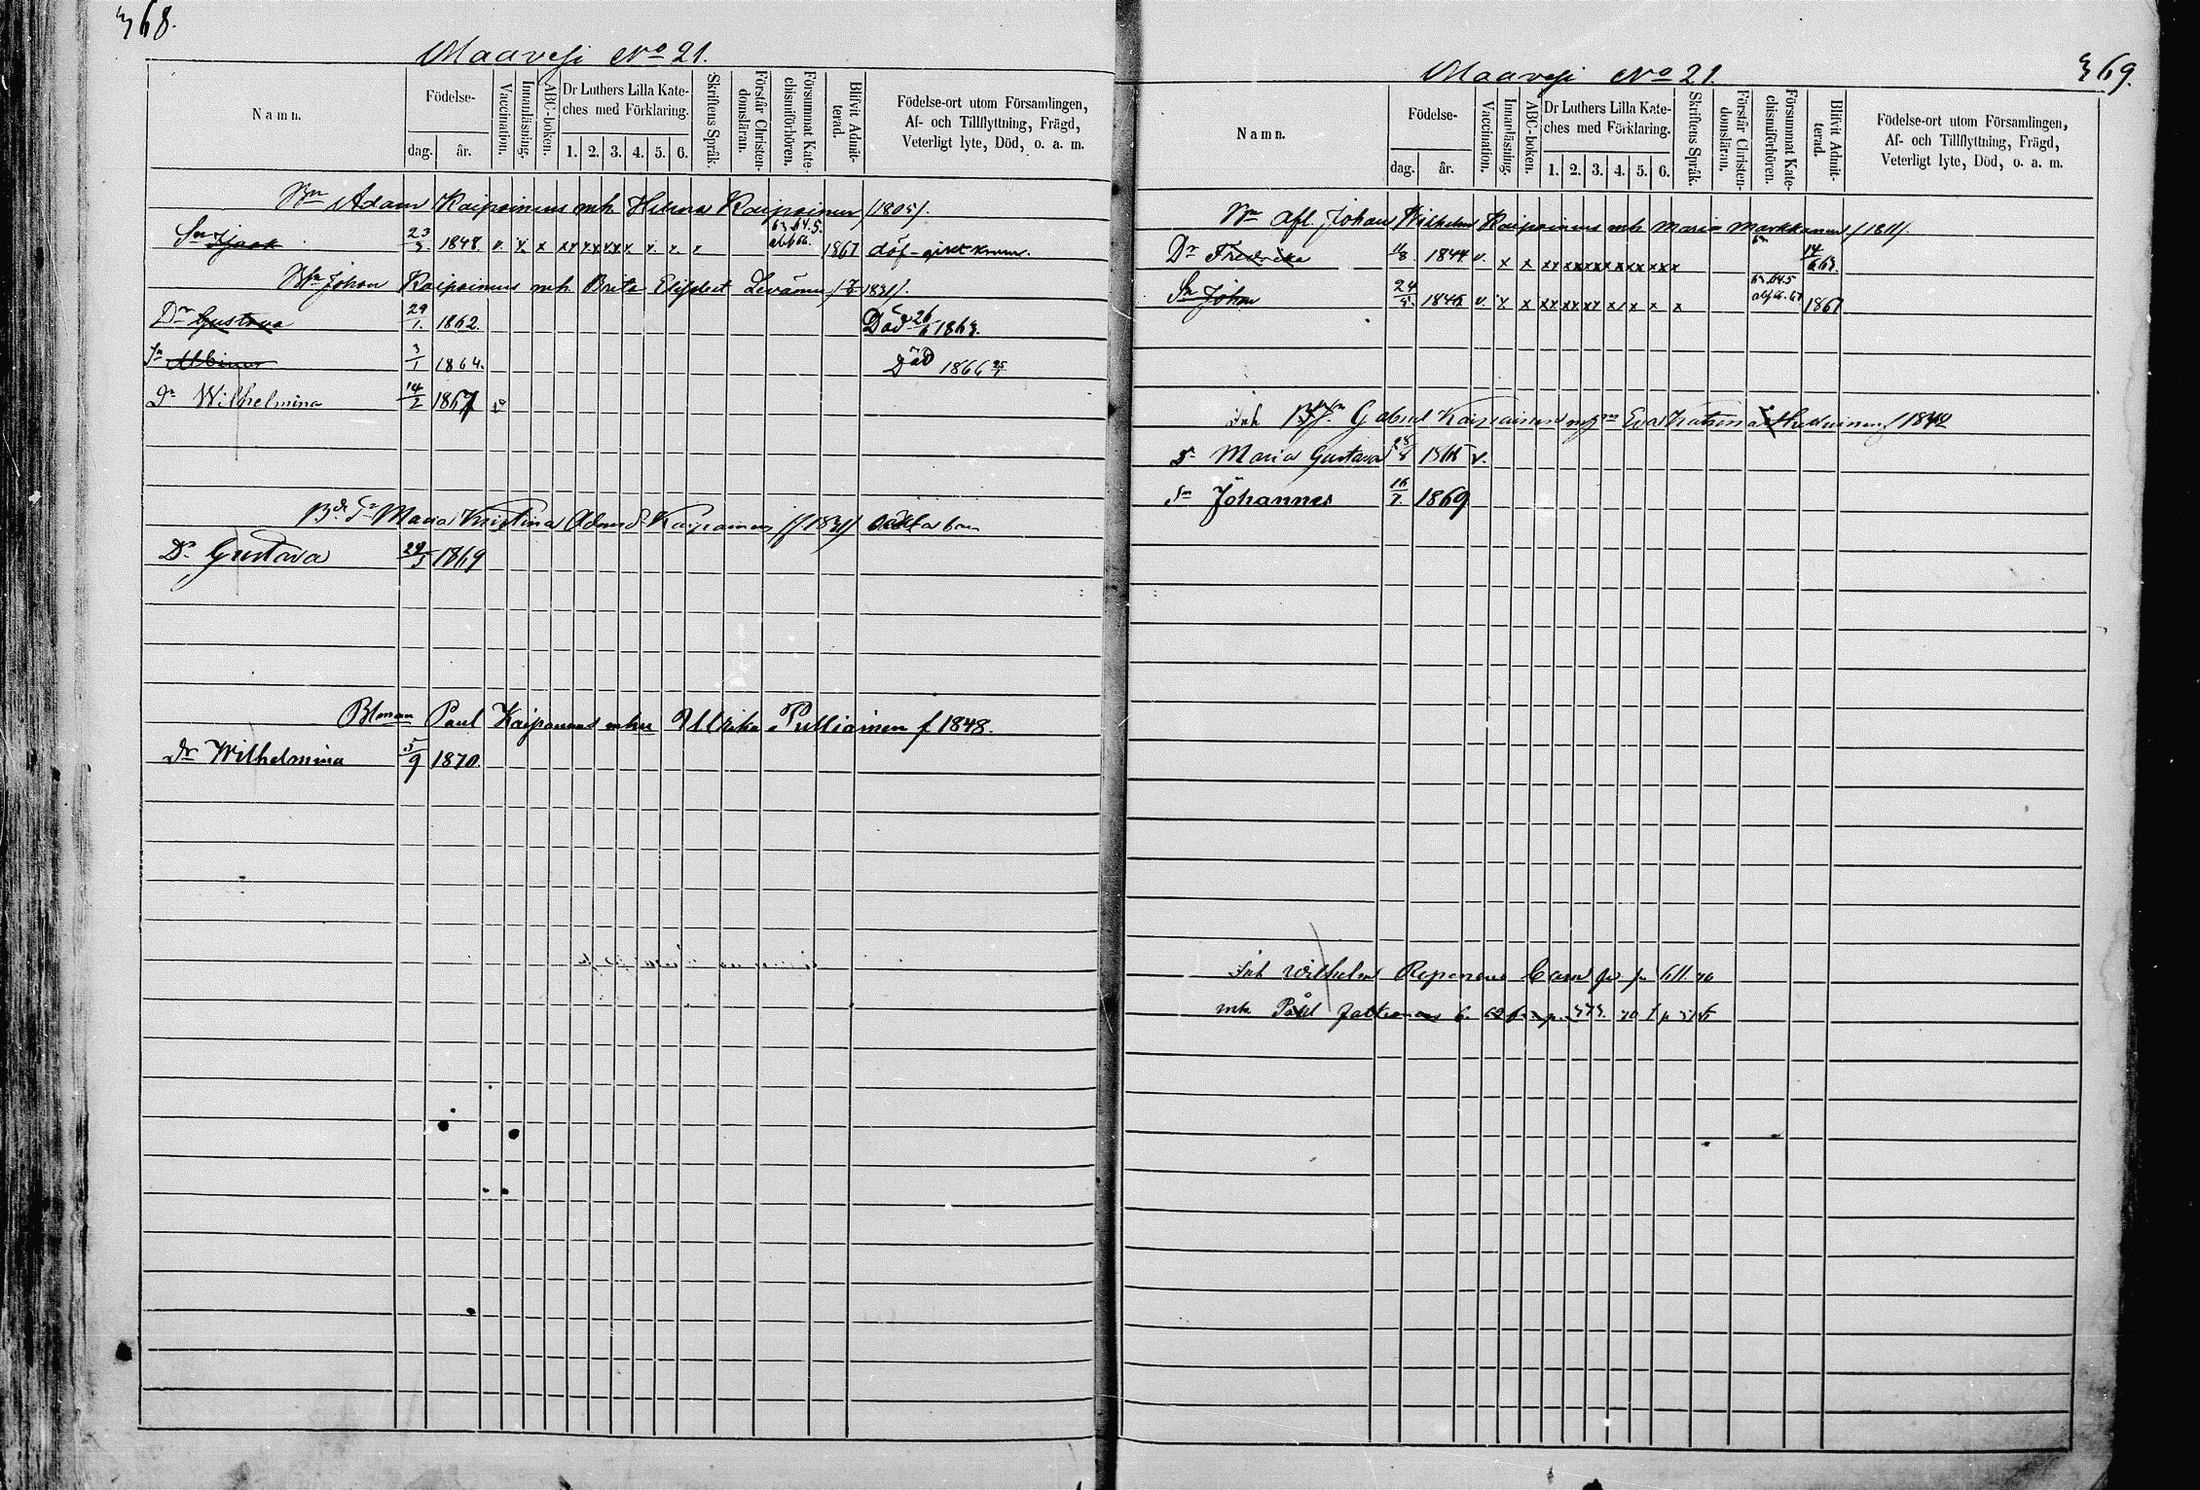 368.
Maavesi No 21.
Namn.
Födelse-
dag.
år.
Vaccination.
Innanläsning.
ABC-boken.
Dr Luthers Lilla Kate-
ches med Förklaring.
1. 2. 3. 4. 5. 6.
Skriftens Språk.
Förstår Christen-
domsläran.
Försummat Kate-
chismiförhören.
Blifvit Admit-
terad.
Födelse-ort utom Församlingen,
Af- och Tillflyttning, Frägd,
Veterligt lyte, Död, o. a. m.
Adam Kaipainens mh Helena Kaipainen /1805/.
Sn Isaak 23/3 1848. v. x x xx xx xx x x. x. x 1867 döf
Johan Kaipainens mh Brita Elisabet Levänen 1831/.
Dr Gustava 29/1. 1862. Död 26/6 1863.
Sn Albinus 3/1 1864. Död 1866
Dr Wilhelmina 14/2 1867 v
Maria Kristina Adamsd. Kaipainens /f 1831/
Dr Gustava 29/3 1869
Paul Kaipainens Ulrika Pulliainen f 1848.
Dr Wilhelmina 5/9 1870.
369.
Maavesi No 21.
Namn.
Födelse-
dag.
år.
Vaccination.
Innanläsning.
ABC-boken.
Dr Luthers Lilla Kate-
ches med Förklaring.
1. 2. 3. 4. 5. 6.
Skriftens Språk.
Förstår Christen-
domsläran.
Försummat Kate-
chismiförhören.
Blifvit Admit-
terad.
Födelse-ort utom Församlingen,
Af- och Tillflyttning, Frägd,
Veterligt lyte, Död, o. a. m.
afl. Johan Wilhelm Kaipainens mh Maria Markkanen /1811/.
Dr Fredrika 1844 v. x x xx xx xx xx xx xxx 14/6 63.
Sn Johan 24/5 1846 v. x x xx xx xx x x x x x 1867
Inh Gabriel Kaipainens Eva Katarina
Maria Gustava 1866 v.
Sn Johannes 16/7. 1869
Inh Wilhelm Reponens barn
mh Pål